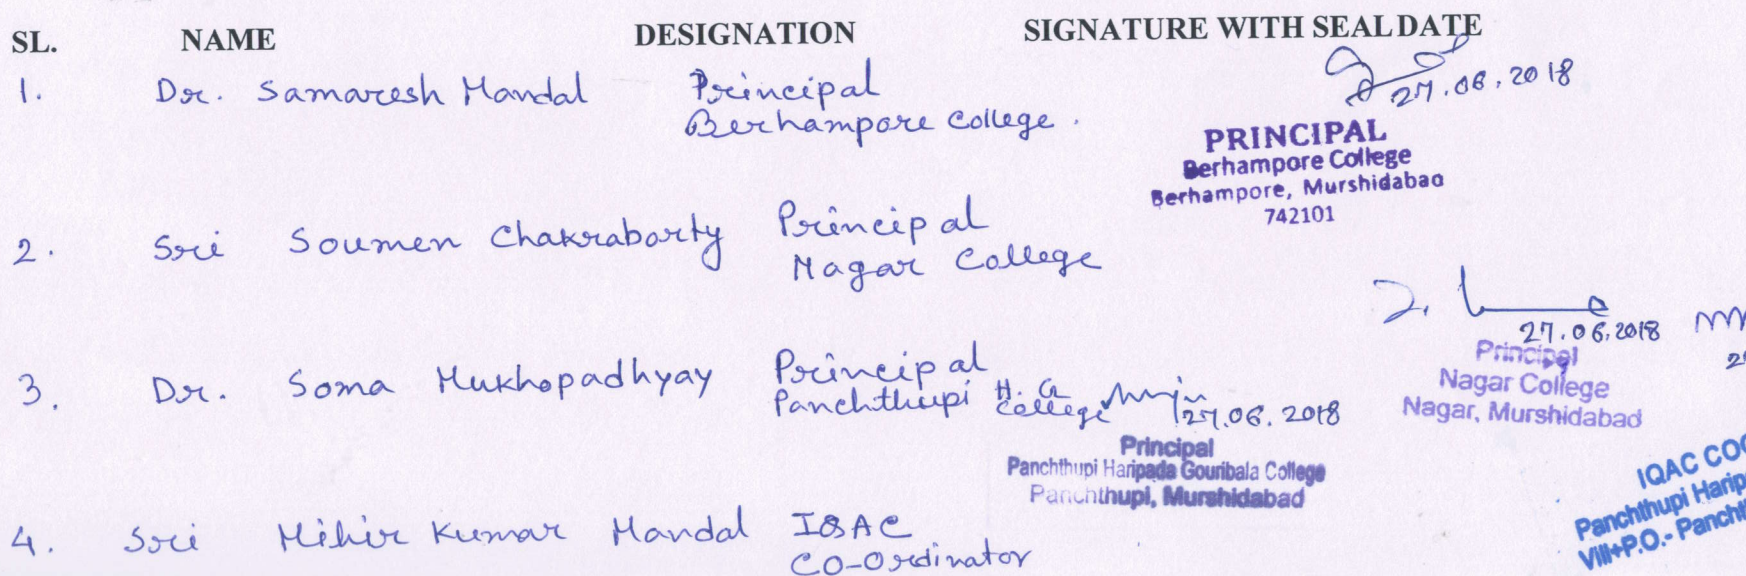 SL. NAME DESIGNATION SIGNATURE WITH SEAL DATE
1. Dr. Samaresh Mandal Principal
Berhampore College.
27.06.2018
PRINCIPAL
Berhampore College
Berhampore, Murshidabad
742101
2. Sri Soumen Chakraborty Principal
Nagar College
27.06.2018
Principal
Nagar College
Nagar, Murshidabad
3. Dr. Soma Mukhopadhyay Principal
Panchthupi H. G. College
27.06.2018
Principal
Panchthupi Haripada Gouribala College
Panchthupi, Murshidabad
4. Sri Mihir Kumar Mandal IQAC
CO-Ordinator
IQAC COO
Panchthupi Harip
Vill+P.O.- Panchth